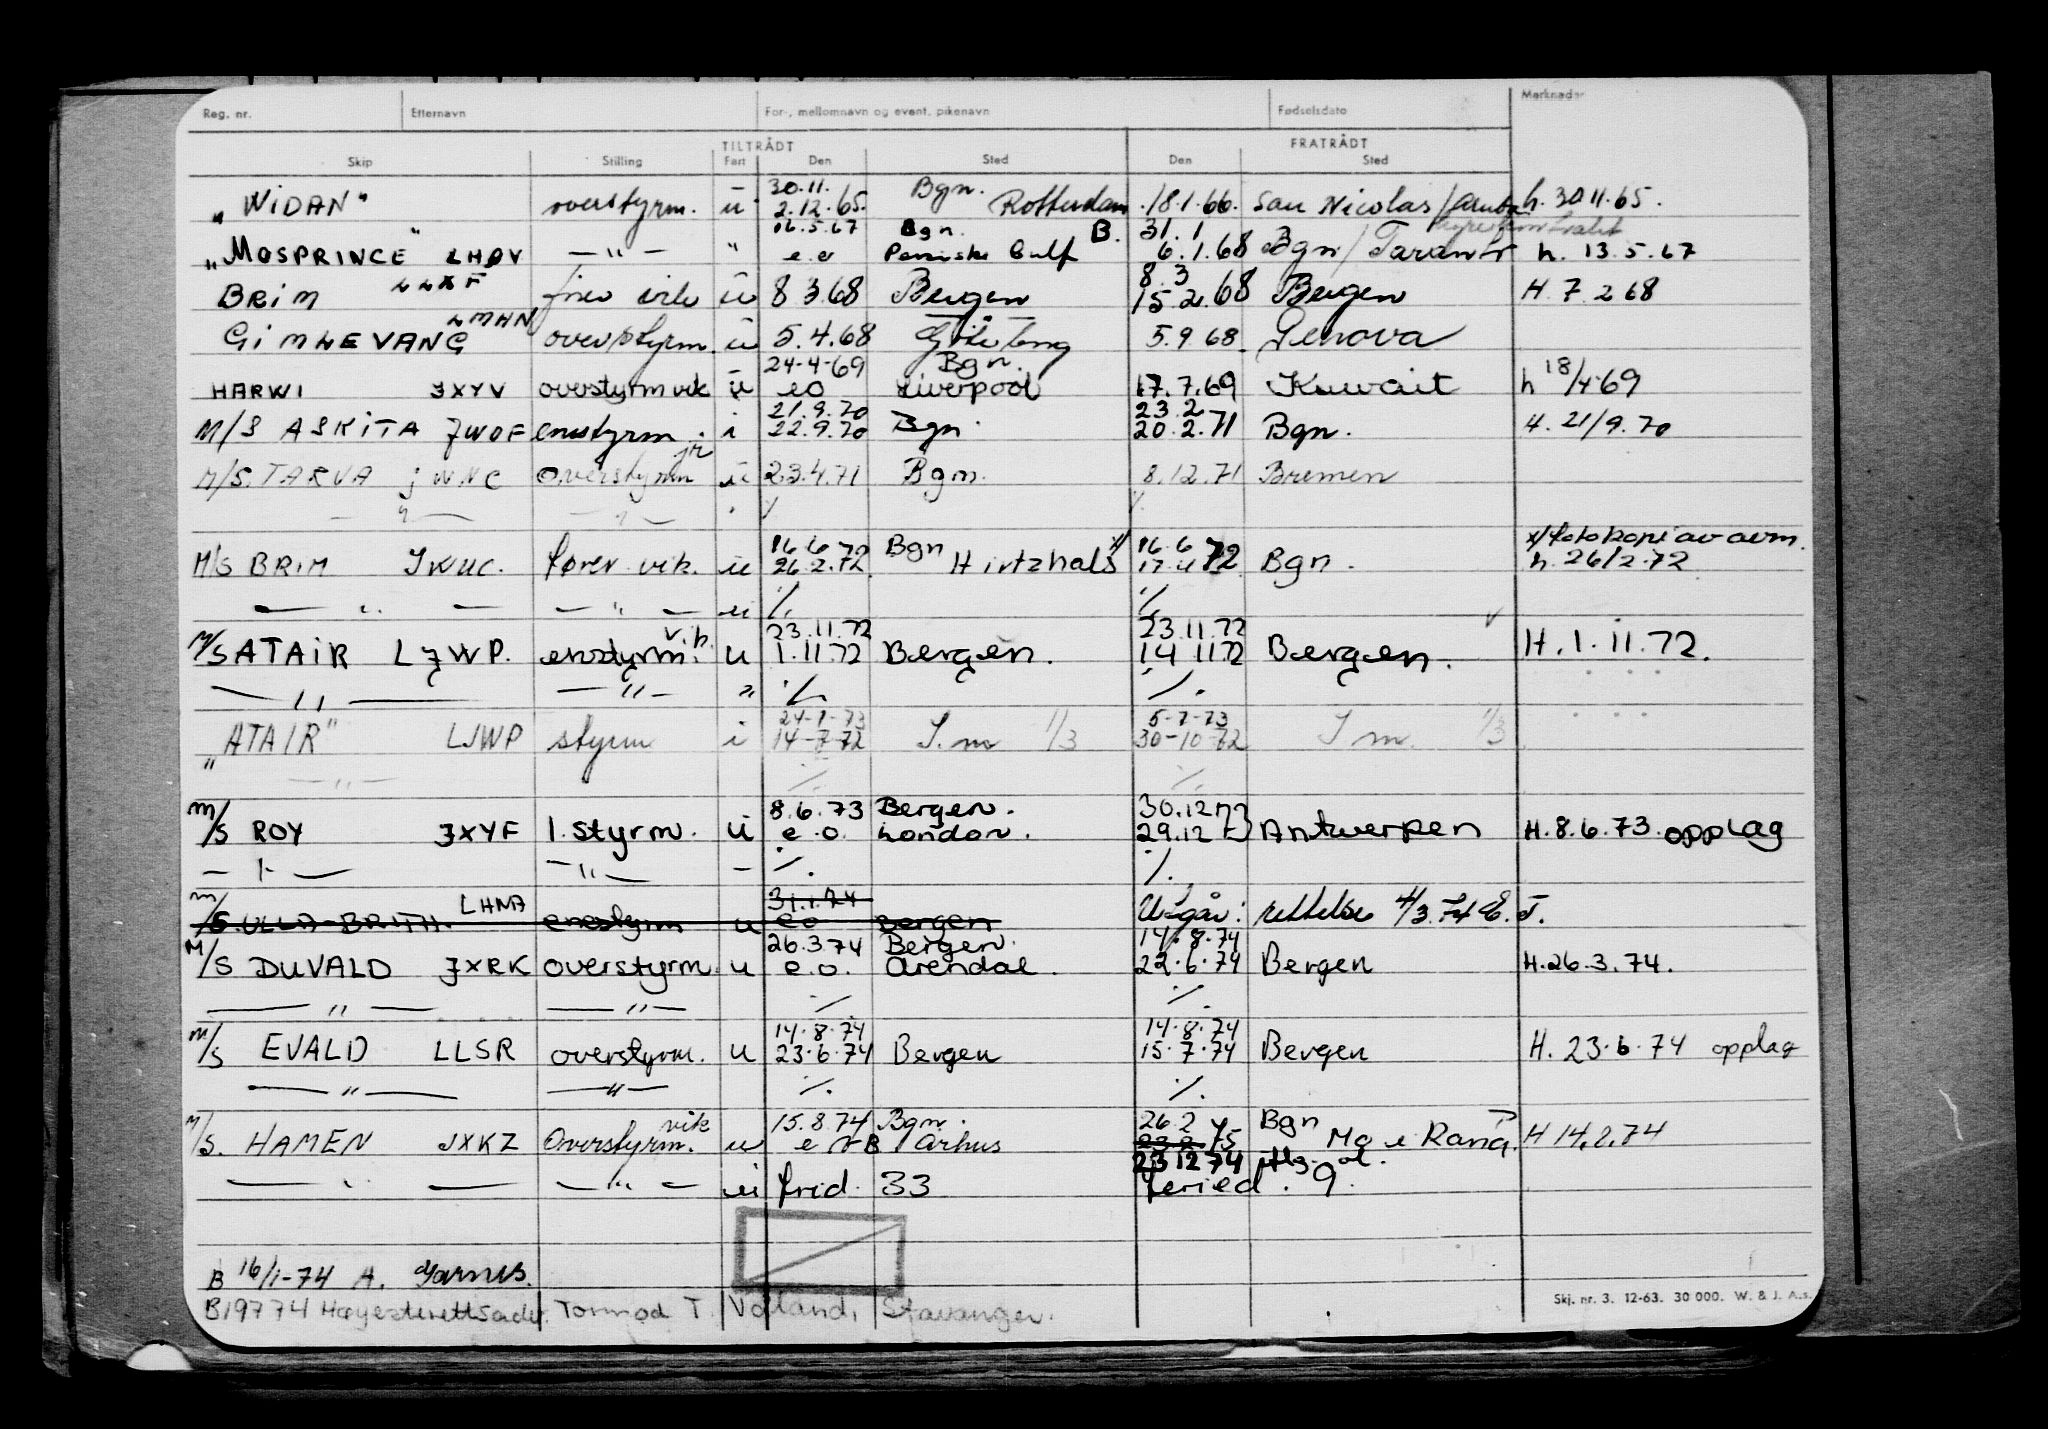 Reg. nr. Etternavn For-, mellomnavn og event. pikenavn Fødselsdato Merknader
TILTRÅDT FRATRÅDT
Skip Stilling Fart Den Sted Den Sted
30.11. Bgn.
„WIDAN" overstyrm. u 2.12.65. Rotterdam 18.1.66. San Nicolas/Aruba h. 30.11.65.
16.5.67 Bgn. B. 31.1
„MOSPRINCE" LHOV —"— " e.o Persiske Gulf 6.1.68 Bgn/Taranto h. 13.5.67
LLXF 8.3
BRIM u 8 3.68 Bergen 15.2.68 Bergen H 7.2 68
LMHN
GIMLEVANG overstyrm. u 5.4.68 Göteborg 5.9 68 Genova
24-4-69 Bgn.
HARWI JXYV overstyrm vik u eo Liverpool 17.7.69 Kuwait h 18/4 69
21.9.70 23.2
M/S ASKITA JWOF enestyrm i 22.9.70 Bgn 20.2.71 Bgn. H. 21/9.70
jr
M/S. TARVA JWNC Overstyrm u 23.4.71 Bgn. 8.12.71 Bremen
— " — — " — " ٪ ٪
16.6 72 Bgn x/ 16.6 x/ fotokopi av avm.
M/S BRIM JKUC. fører vik. u 26.2.72 Hirtzhals 17.4 72 Bgn. h. 26/2-72
— " — — " — u ٪ ٪
vik 23.11.72 23.11.72
M/S ATAIR LJWP. enestyrm. u 1.11.72 Bergen. 14 11 72 Bergen. H.1.11.72.
— " — — " — " ٪ ٪.
24-1-73 5-7-73
„ATAIR" LJWP styrm i 14-7-72 I.m 1/3 30-10-72 I m. 1/3
— " — ٪ ٪
8.6.73 Bergen. 30.12 73
M/S ROY JXYF 1. styrm. u e.o. London. 29.12 Antwerpen H.8.6.73. opplag
— " — — " — – ٪. ٪.
LHNA 31.1.74
M/S. ULLA-BRITH. enestyrm u eo Bergen Utgår: rettelse 4/3.74 E.T.
26.3.74 Bergen. 14.8.74
M/S DUVALD JXRK overstyrm. u e.o. Arendal. 22.6.74 Bergen H.26.3.74.
— " — — " — ٪ ٪.
14.8.74 14.8.74
M/S EVALD LLSR overstyrm. u 23.6.74 Bergen 15.7.74 Bergen H. 23.6.74 opplag
— " — — " — ٪. ٪.
vik 15.8.74 Bgn. 26.2 75 Bgn
M/S. HAMEN JXKZ Overstyrm. u e o B Århus 23.2 Mo i Rana. H 14.8.74
23 12 74
— " — — " — u frid. 33 feried. 9.
B 16/1-74 A.
B19774 Høyesterettsadv. Tormod T. Voiland, Stavanger.
Skj. nr. 3. 12-63. 30 000. W. & J. A.s.